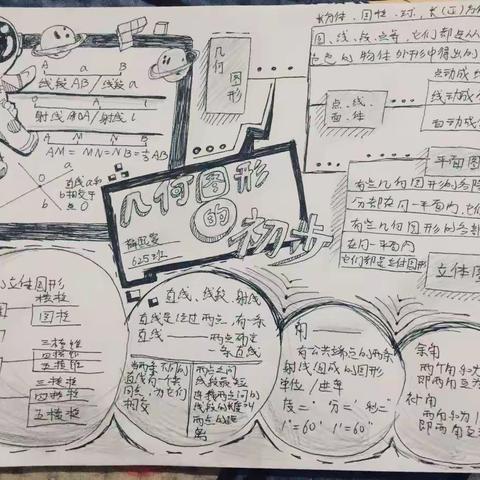 长方体、圆柱、球、长(正)方
圆、线、段、点等，它们都是从
各色的物体外形中得出的
几何
图形
点、线、
面、体
点动成
线动成
面动成
A a B
线段AB/线段a
O A l
射线OA/射线l
A M N B
AM=MN=NB=⅓AB
a
b
O
直线a和
b相交于
点O
几何图形
的
初步
625班
平面图
有些几何图形的各部
分都在同一平面内,它们
有些几何图形的各部
在同一平面内
它们都是立体图形
立体图
立体图形
棱柱
圆柱
三棱锥
四棱锥
五棱锥
三棱柱
四棱柱
五棱柱
直线、线段、射线
直线是经过两点,有一条
直线——两点确定
一条直线
当两条不同的
直线有一个公共
点时,称它们
相交
两点之间
线段最短
连接两点间的
线段的长度叫
两点的距
离
角——
有公共端点的两条
射线组成的图形
单位/进率
度=° 分=′ 秒=″
1°=60′ 1′=60″
余角
两个角和为
即两角互为
补角
两角和为1
即两角互